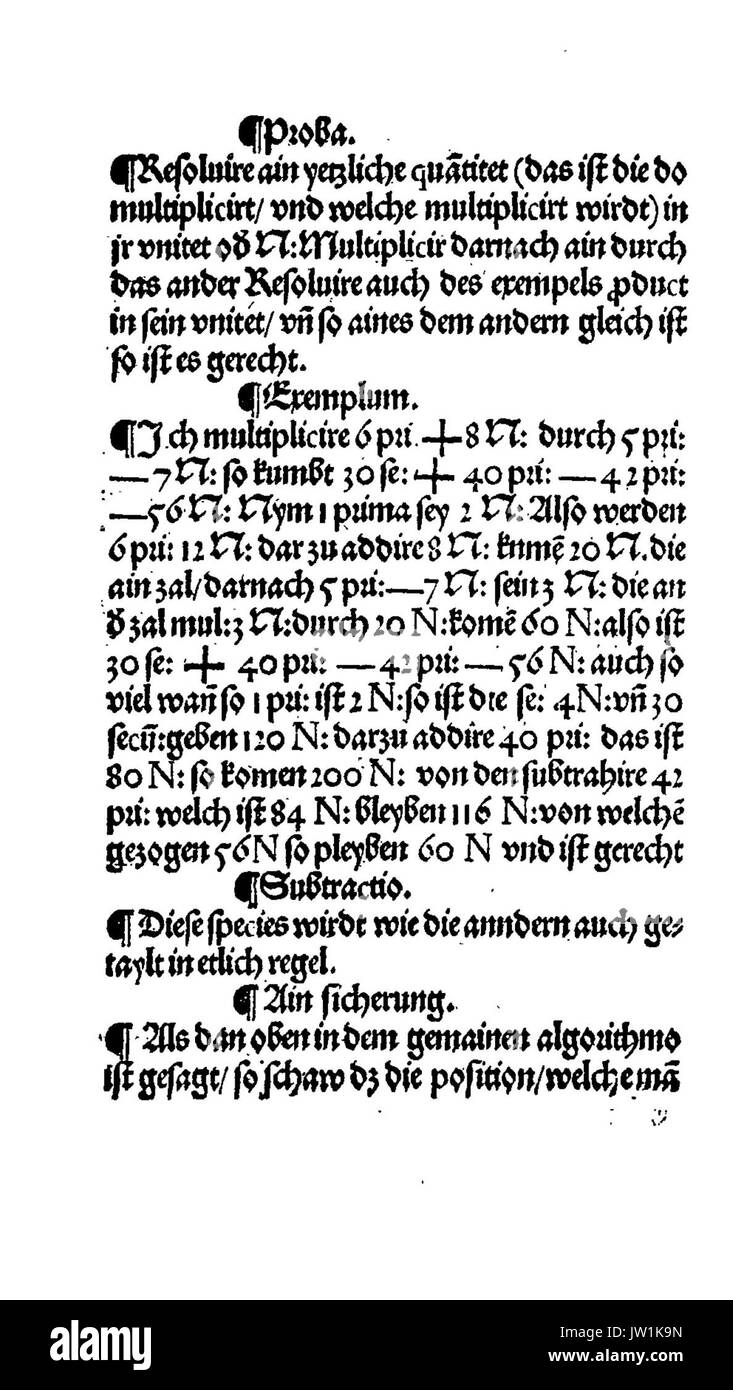 ¶Proba.
¶Resoluire ain yetzliche quātitet (das ist die do
multiplicirt/ vnd welche multiplicirt wirdt) in
jr vnitet od N: Multiplicir darnach ain durch
das ander Resoluire auch des exempels ꝓduct
in sein vnitet/ vn̄ so aines dem andern gleich ist
so ist es gerecht.
¶Exemplum.
¶Jch multiplicire 6 pri. + 8 N: durch 5 pri:
— 7 N: so kumbt 30 se: + 40 pri: — 42 pri:
— 56 N: Nym 1 prima sey 2 N: Also werden
6 pri: 12 N: darzu addire 8 N: kumē 20 N. die
ain zal/ darnach 5 pri: — 7 N: sein 3 N: die an
d zal mul: 3 N: durch 20 N: komē 60 N: also ist
30 se: + 40 pri: — 42 pri: — 56 N: auch so
viel wan̄ so 1 pri: ist 2 N: so ist die se: 4 N: vn̄ 30
secū: geben 120 N: darzu addire 40 pri: das ist
80 N: so komen 200 N: von den subtrahire 42
pri: welch ist 84 N: bleyben 116 N: von welchē
gezogen 56 N so pleyben 60 N vnd ist gerecht
¶Subtractio.
¶ Diese species wirdt wie die anndern auch ge⸗
taylt in etlich regel.
¶ Ain sicherung.
¶ Als dan oben in dem gemainen algorithmo
ist gesagt/ so schaw dz die position/ welche mā
a alamy stock photo
alamy
JW1K9N
www.alamy.com